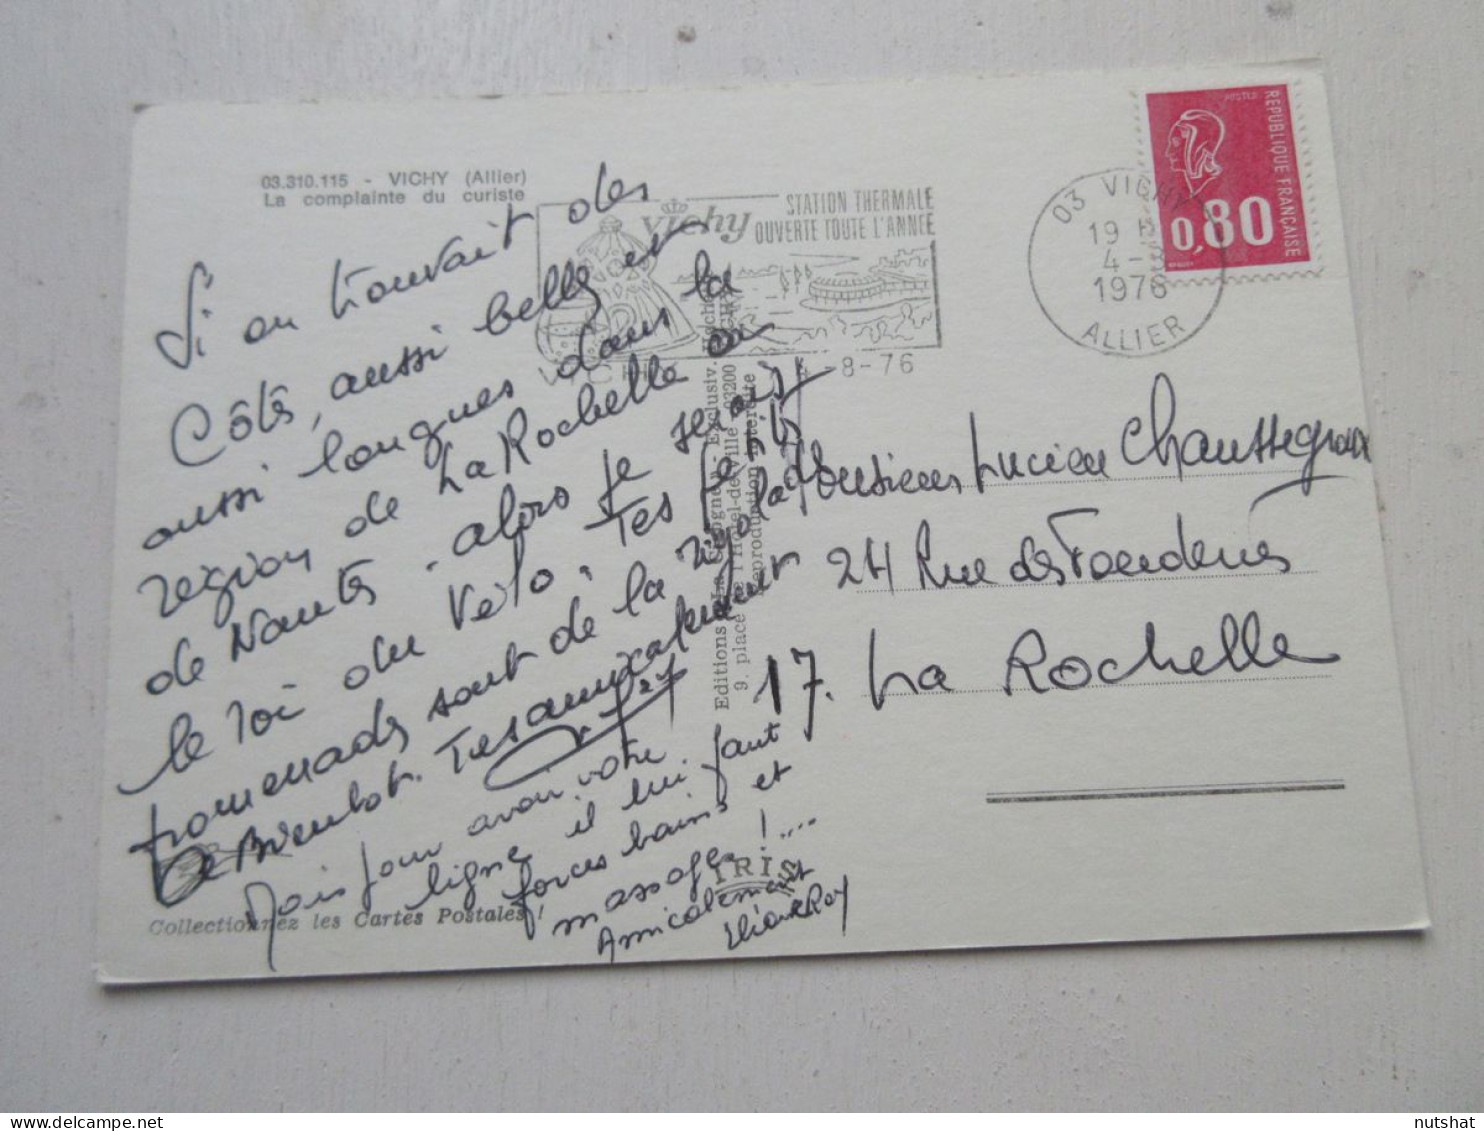 03.310.115 - VICHY (Allier)
La complainte du curiste
Si on trouvait des
Côtes, aussi belles et
aussi longues dans la
région de La Rochelle ou
de Nantes, alors je serais
le roi du Vélo. Tes petites
promenades sont de la rigolade
A Bientot. Tes amicalement
Mais pour avoir votre
ligne il lui faut
forces bains et
massage !....
Amicalement
Collectionnez les Cartes Postales !
Vichy
STATION THERMALE
OUVERTE TOUTE L'ANNÉE
VICHY
4-8-76
03 VICHY
19 H
4 - 8
1976
ALLIER
POSTES
REPUBLIQUE FRANÇAISE
0,80
Editions "La Cigogne" - Exclusiv. Hachette
9, place de l'Hôtel-de-Ville 03200 VICHY
Reproduction interdite
IRIS
Monsieur Lucien Chaussegroux
24 Rue des Fonderies
17. La Rochelle
nutshat